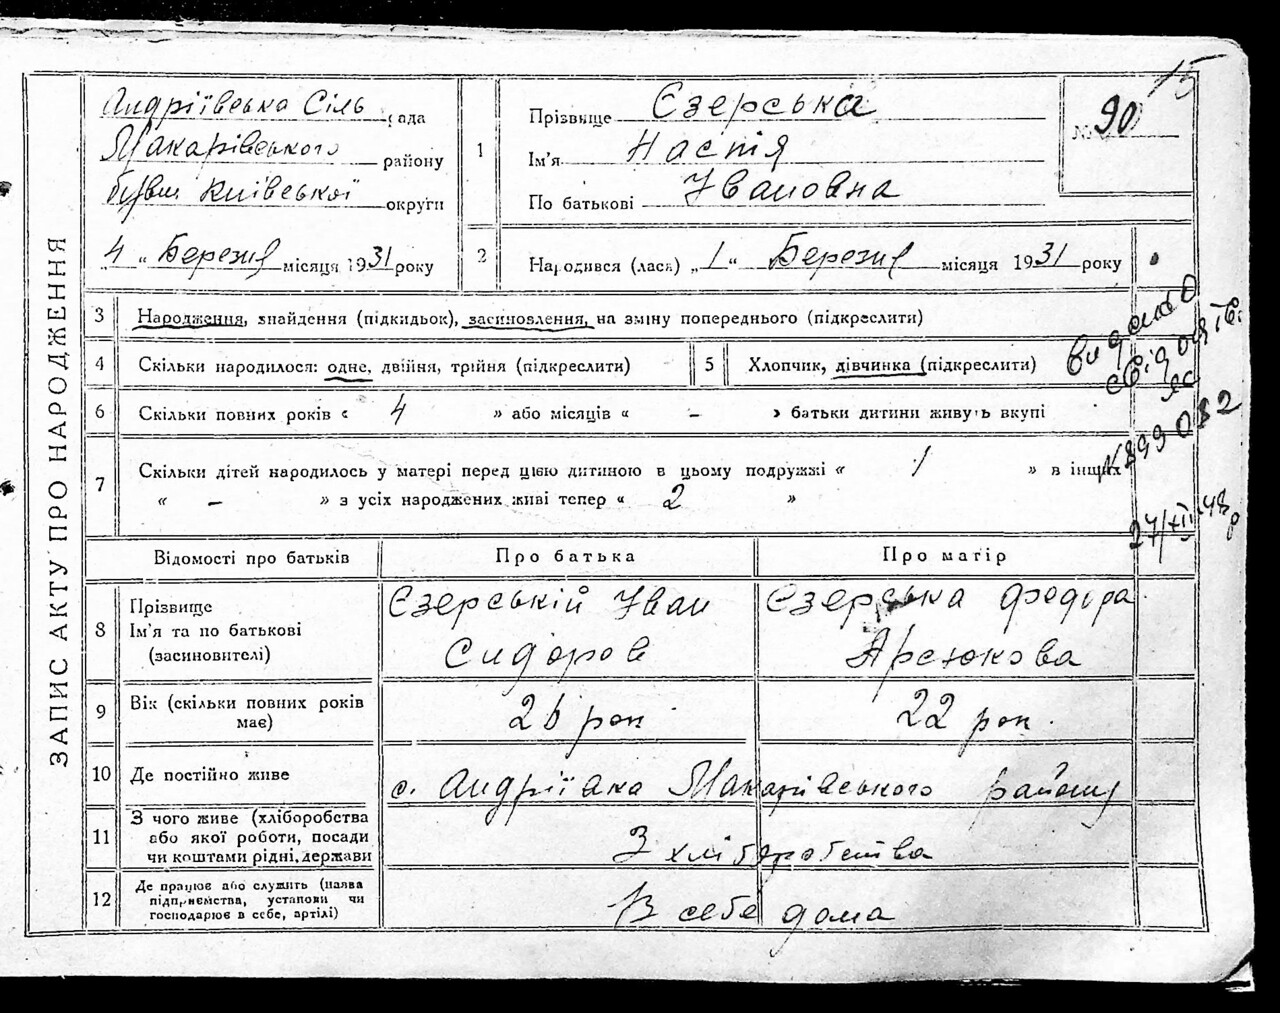 15
ЗАПИС АКТУ ПРО НАРОДЖЕННЯ
Андріївська Сіль рада
Макарівського району
бувш. Київської округи
„4“ Березня місяця 1931 року
1
Прізвище Єзерська
Ім'я Настя
По батькові Ивановна
№ 90
2
Народився (лась) „1“ Березня місяця 1931 року
3 Народження, знайдення (підкидьок), засиновлення, на зміну попереднього (підкреслити)
4 Скільки народилося: одне, двійня, трійня (підкреслити)
5 Хлопчик, дівчинка (підкреслити)
6 Скільки повних років « 4 » або місяців « – » батьки дитини живуть вкупі
7 Скільки дітей народилось у матері перед цією дитиною в цьому подружжі « 1 » в інших
« – » з усіх народжених живі тепер « 2 »
видано
свідоцтв.
№899082
27/XII-48р
Відомості про батьків
Про батька
Про матір
8 Прізвище
Ім'я та по батькові
(засиновителі)
Єзерській Иван
Сидоров
Єзерська Федора
Арсюкова
9 Вік (скільки повних років
має)
26 рок
22 рок.
10 Де постійно живе
с. Андріївка Макарівського району
11 З чого живе (хліборобства
або якої роботи, посади
чи коштами рідні, держави
З хліборобства
12 Де працює або служить (назва
підприємства, установи чи
господарює в себе, артілі)
В себе дома